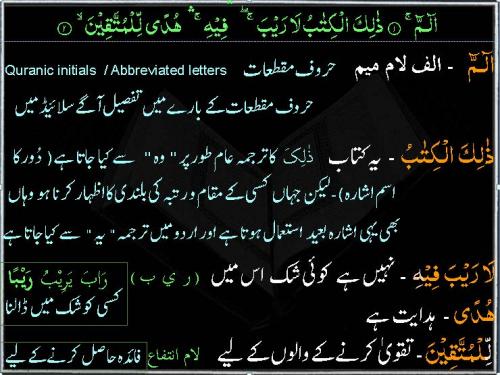 الٓمّٓ ۚ ﴿۱﴾ ذٰلِكَ الْكِتٰبُ لَا رَيْبَ ۛۖ فِيْهِ ۛۚ هُدًى لِّلْمُتَّقِيْنَ ۙ ﴿۲﴾
الٓمّٓ - الف لام میم حروف مقطعات Quranic initials / Abbreviated letters
حروف مقطعات کے بارے میں تفصیل آگے سلائیڈ میں
ذٰلِكَ الْكِتٰبُ - یہ کتاب ذٰلِكَ کا ترجمہ عام طور پر "وہ" سے کیا جاتا ہے (دُور کا
اسم اشارہ) - لیکن جہاں کسی کے مقام و رتبہ کی بلندی کا اظہار کرنا ہو وہاں
بھی یہی اشارہ بعید استعمال ہوتا ہے اور اردو میں ترجمہ "یہ" سے کیا جاتا ہے
لَا رَيْبَ فِيْهِ - نہیں ہے کوئی شک اس میں (ر ي ب) رَابَ يَرِيْبُ رَيْبًا
کسی کو شک میں ڈالنا
هُدًى - ہدایت ہے
لِّلْمُتَّقِيْنَ - تقویٰ کرنے کے والوں کے لیے لام انتفاع فائدہ حاصل کرنے کے لیے